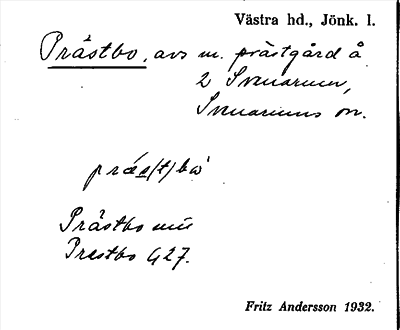 Västra hd., Jönk. l.
Prästbo, avs m. prästgård å
2 Svenarum,
Svenarums sn.
präs/t/bω
Prästbo
Prestbo G27.
Fritz Andersson 1932.